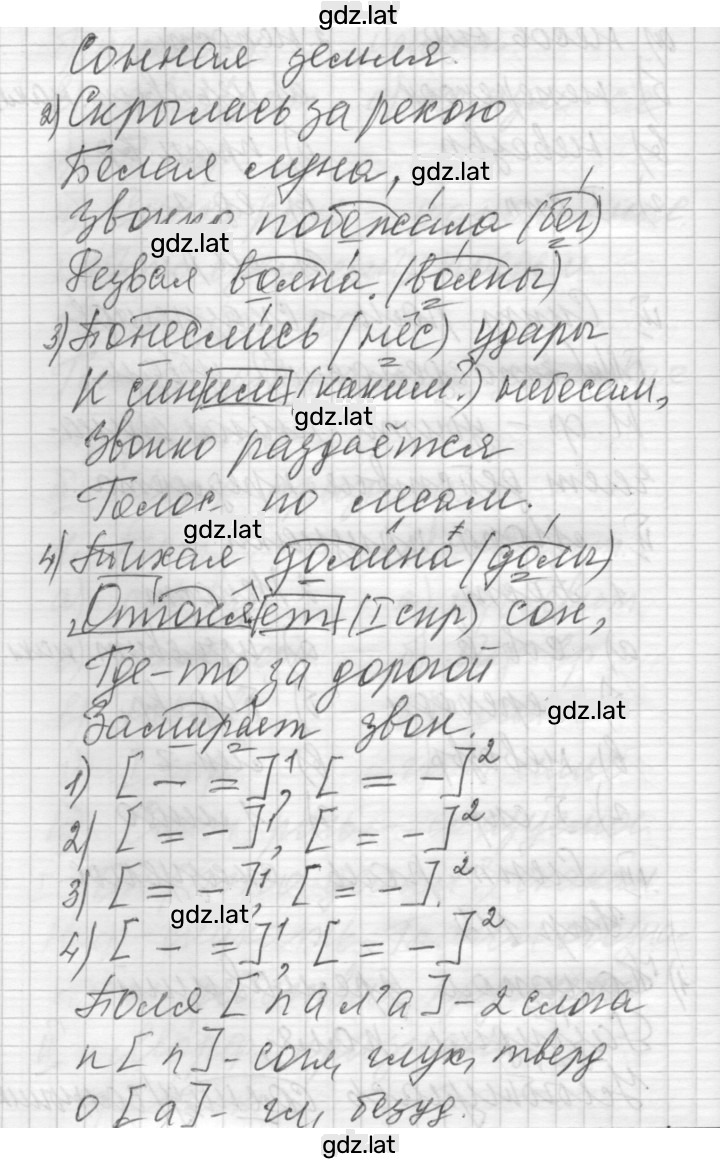 gdz.lat
Сонная земля.
2) Скрылась за рекою
Белая луна, gdz.lat
Звонко побежала (бег)
gdz.lat
Резвая волна. (волны)
3) Понеслись (нёс) удары
К син им (каким?) небесам,
gdz.lat
Звонко раздаётся
Голос по лесам.
gdz.lat
4) Тихая долина (долы)
Отгоняет (I спр) сон,
Где-то за дорогой
gdz.lat
Замирает звон.
1) [ – = ]¹, [ = – ]²
2) [ = – ]¹, [ = – ]²
3) [ = – ]¹, [ = – ].²
gdz.lat
4) [ – = ]¹, [ = – ]²
Поля [ п а л’ а ] – 2 слога
п [ п ] – согл, глух, тверд
о [ а ] – гл, безуд.
gdz.lat